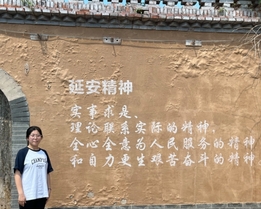 延安精神
实事求是、
理论联系实际的精神，
全心全意为人民服务的精神
和自力更生艰苦奋斗的精神